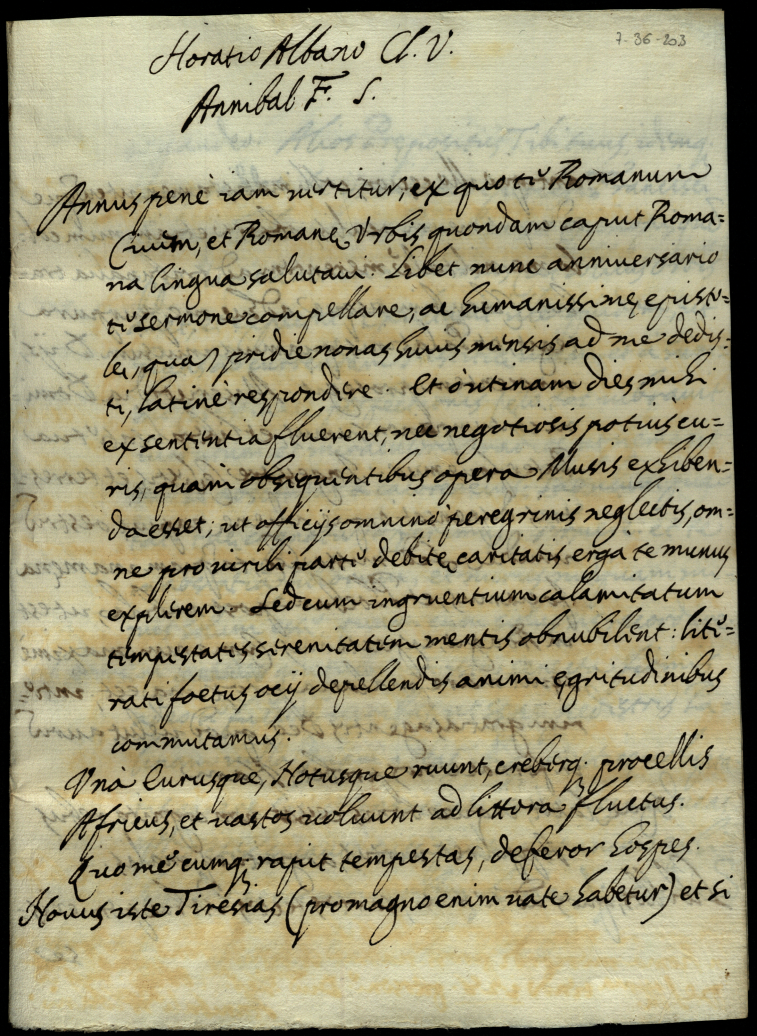 7-36-203
Horatio Albano Cl. V.
Annibal F. S.
Annus penè iam uertitur, ex quo te Romanum
Ciuem, et Romanę Vrbis quondam caput Roma=
na lingua salutaui. Libet nunc anniversario
te sermone compellare, ac humanissimę episto=
lę, quā pridie nonas huius mensis ad me dedis=
ti, latinè respondere. Et ò utinam dies mihi
ex sententia fluerent, nec negotiosis potius cu=
ris, quàm obsequentibus opera Musis exhiben=
da esset; ut officijs omnino peregrinis neglectis, om=
ne pro uirili parte debitę caritatis erga te munus
explerem. Sed cum ingruentium calamitatum
tempestates serenitatem mentis obnubilent: lite=
rati foetus ocij depellendis animi ęgritudinibus
commutamus.
Vnà Eurusque, Notusque ruunt, creberq; procellis
Africus, et uastos uoluunt ad littora fluctus.
Quo me cumq; rapit tempestas, deferor hospes.
Nouus iste Tiresias (pro magno enim uate habetur) et si